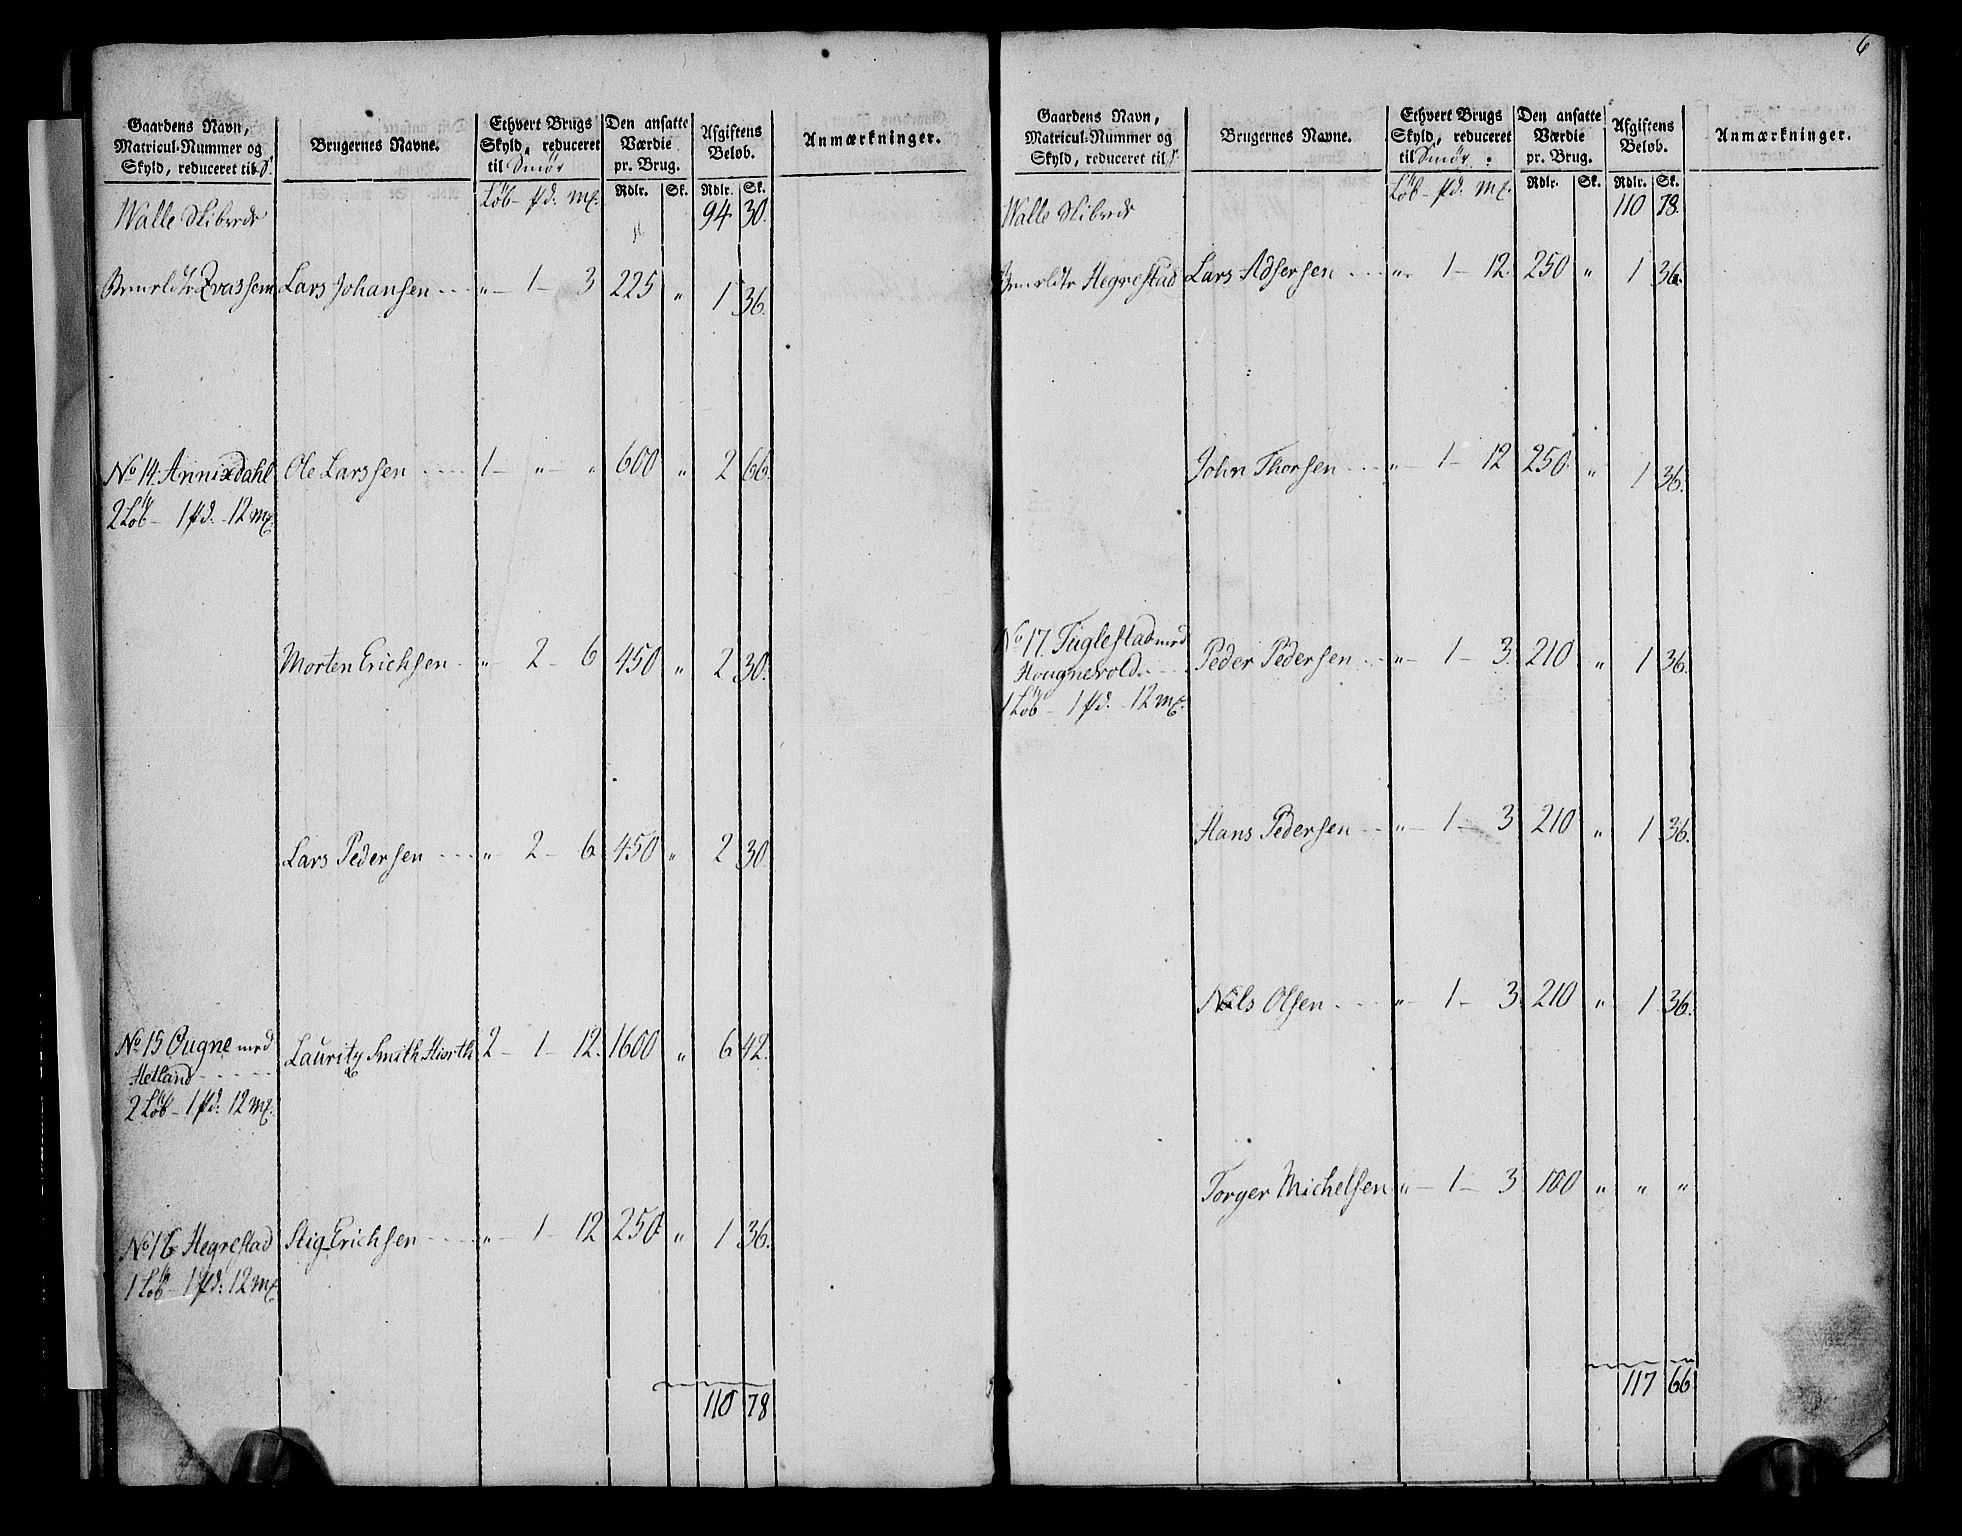 Gaardens Navn, Matricul-Nummer og Skyld, reduceret til
Brugernes Navne.
Ethvert Brugs Skyld, reduceret til Smör
Den ansatte Værdie pr. Brug.
Afgiftens Beløb.
Anmærkninger.
Löb - pd: mk.
Rdlr. Sk. Rdlr. Sk.
Walle Skibrede 94 30.
Qvassem Lars Johansen „ - 1 - 3 225 „ 1 36.
No 14. Annixdahl Ole Larssen 1 - „ - „ 600 „ 2 66.
2 Löb - 1 pd: - 12 mk.
Morten Erichsen „ - 2 - 6 450 „ 2 30.
Lars Pedersen „ 2 - 6 450 „ 2 30
No 15 Ougne med Lauritz Smith Hiorth 2 - 1 - 12. 1600 „ 6 42.
Hetland
2 Löb - 1 pd: 12 mk.
No 16 Hegrestad Stig Erichsen „ - 1 - 12 250. „ 1 36.
1 Löb - 1 pd: 12 mk
110 78
6
Gaardens Navn, Matricul-Nummer og Skyld, reduceret til
Brugernes Navne.
Ethvert Brugs Skyld, reduceret til Smör.
Den ansatte Værdie pr. Brug.
Afgiftens Beløb.
Anmærkninger.
Löb - pd: mk.
Rdlr. Sk. Rdlr. Sk.
Walle Skibrede 110 78.
Hegrestad Lars Adsersen „ - 1 - 12. 250 „ 1 36.
John Thorsen „ - 1 - 12 250. „ 1 36.
No 17. Fuglestad med Peder Pedersen „ - 1 - 3. 210 „ 1 36.
Hougnevold
1 Löb - 1 pd. - 12 mk.
Hans Pedersen „ - 1 - 3 210 „ 1 36.
Nils Olsen „ - 1 - 3 210 „ 1 36.
Torger Michelsen „ - 1 - 3 100 „ „ „
117 66